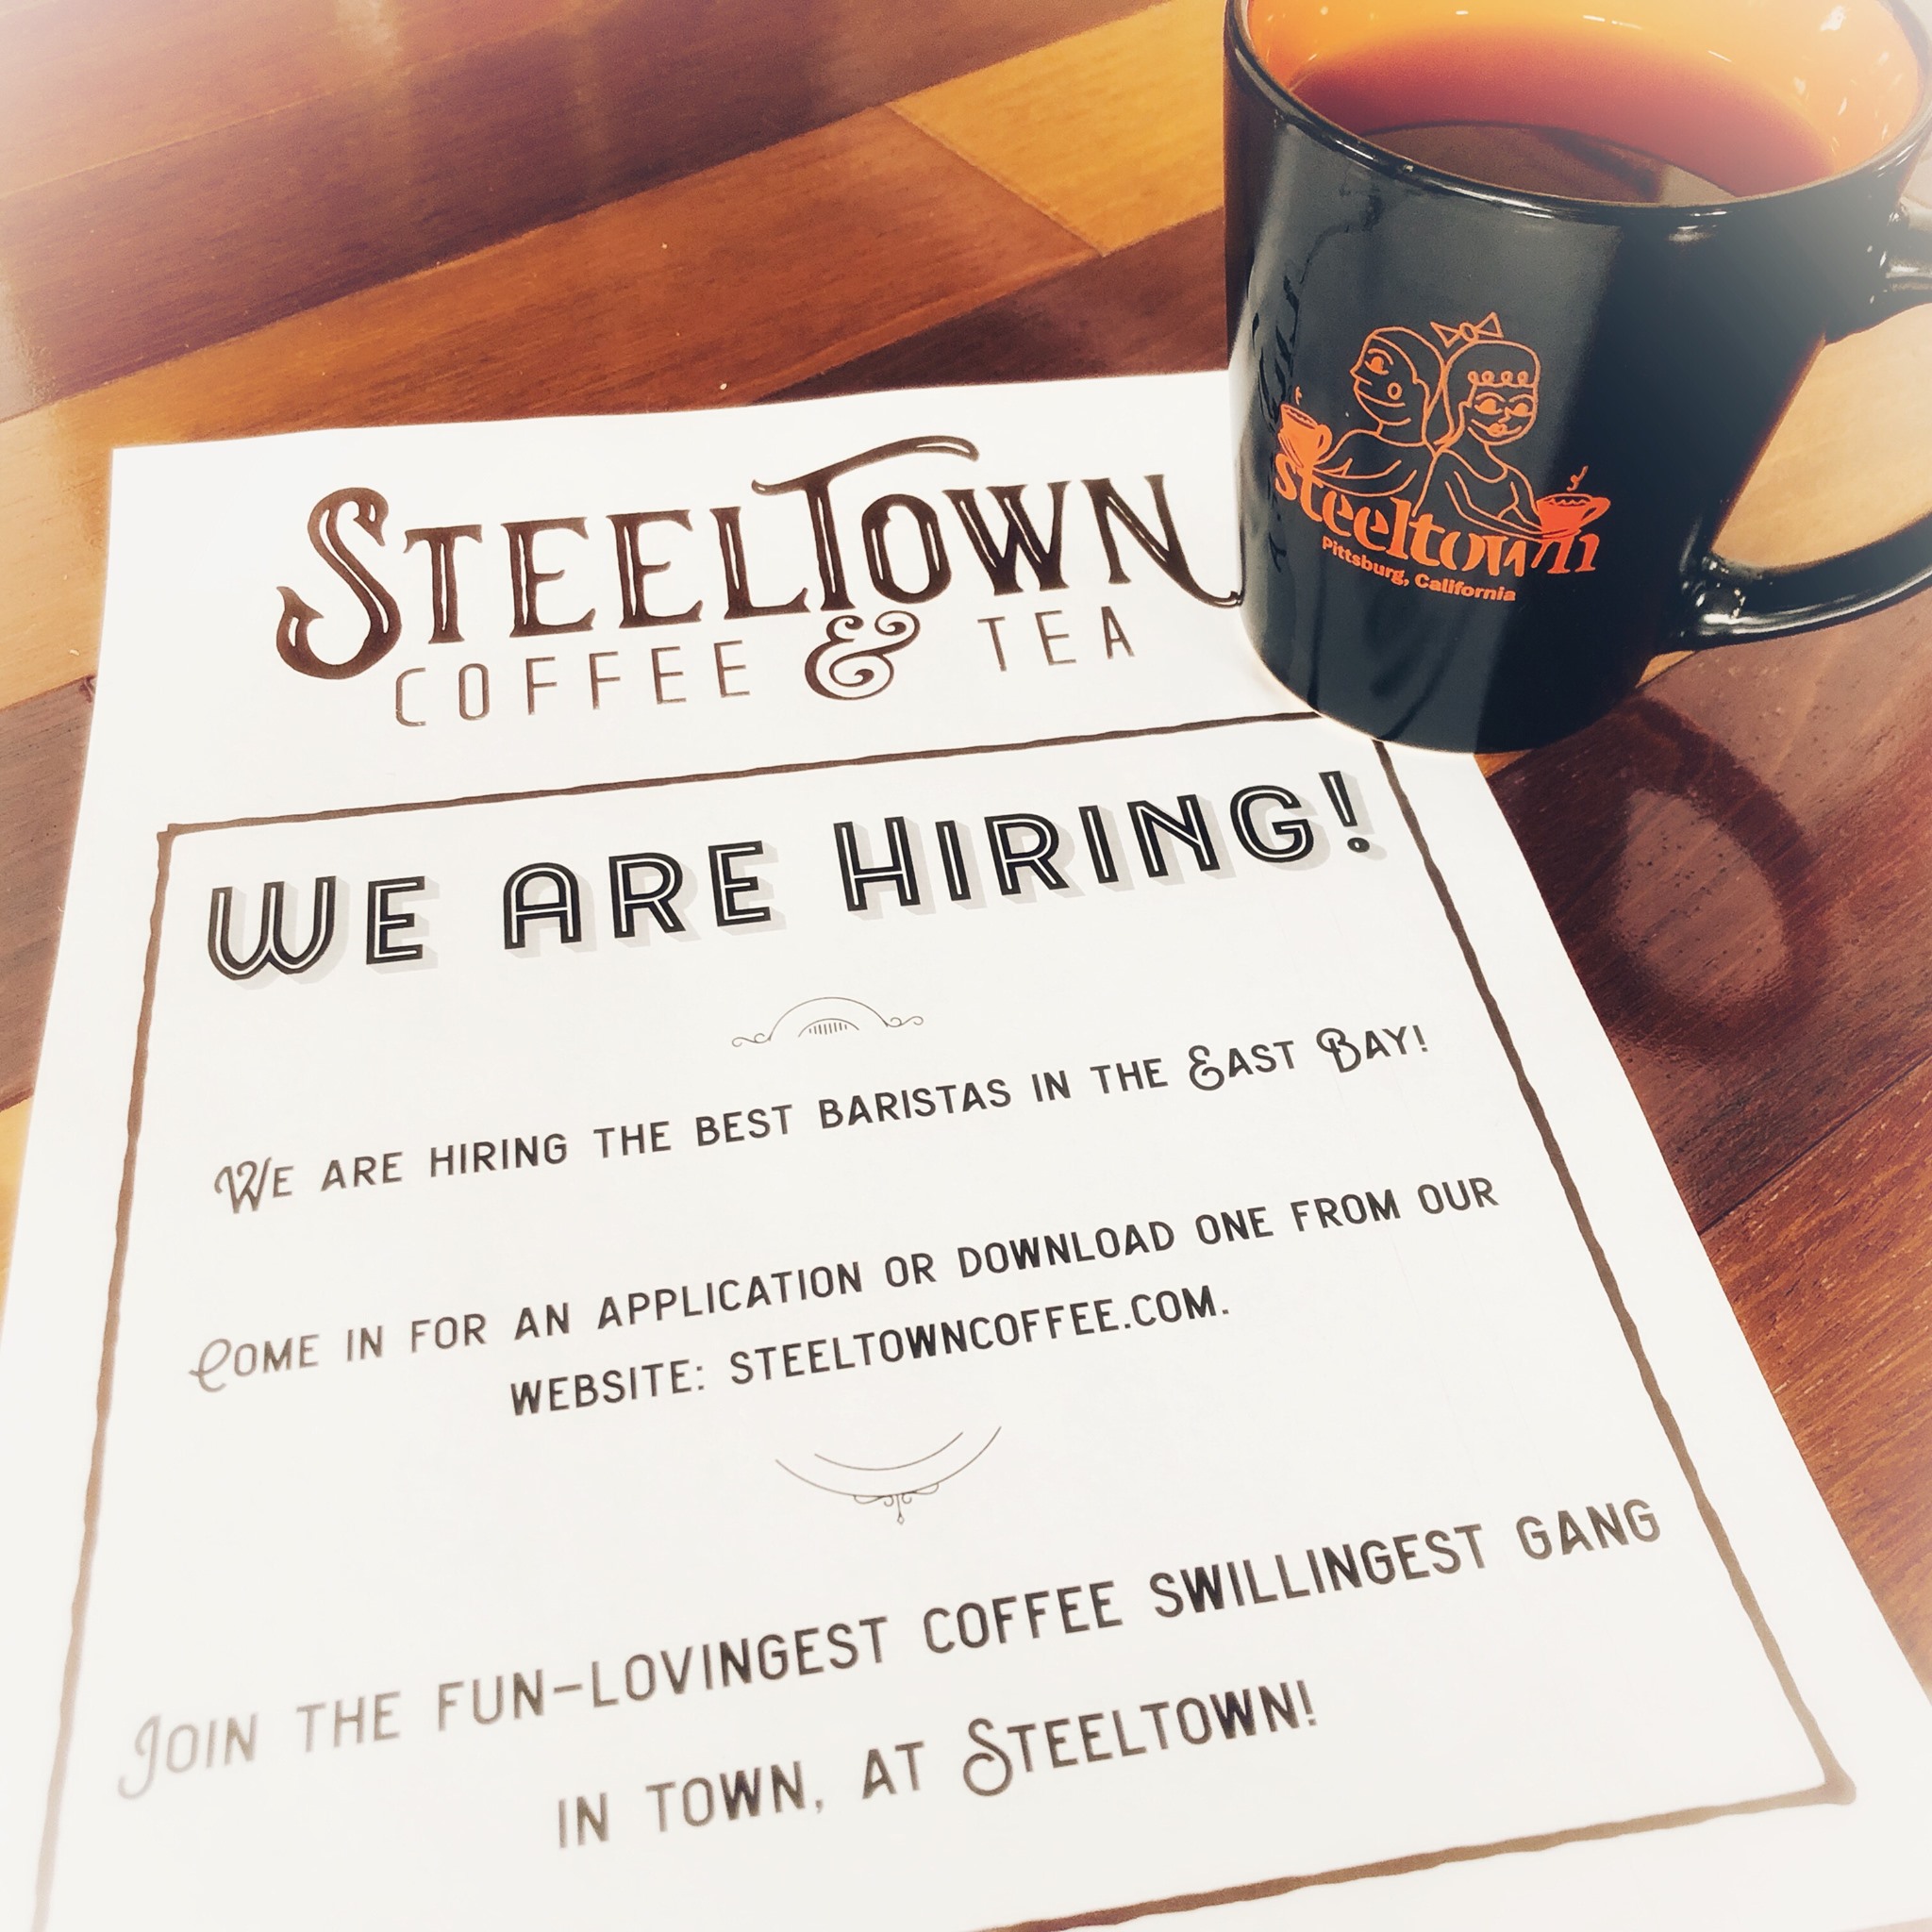 SteelTown
COFFEE & TEA
We Are Hiring!
We are hiring the best baristas in the East Bay!
Come in for an application or download one from our
website: steeltowncoffee.com.
Join the fun-lovingest coffee swillingest gang
in town, at Steeltown!
steeltown
Pittsburg, California